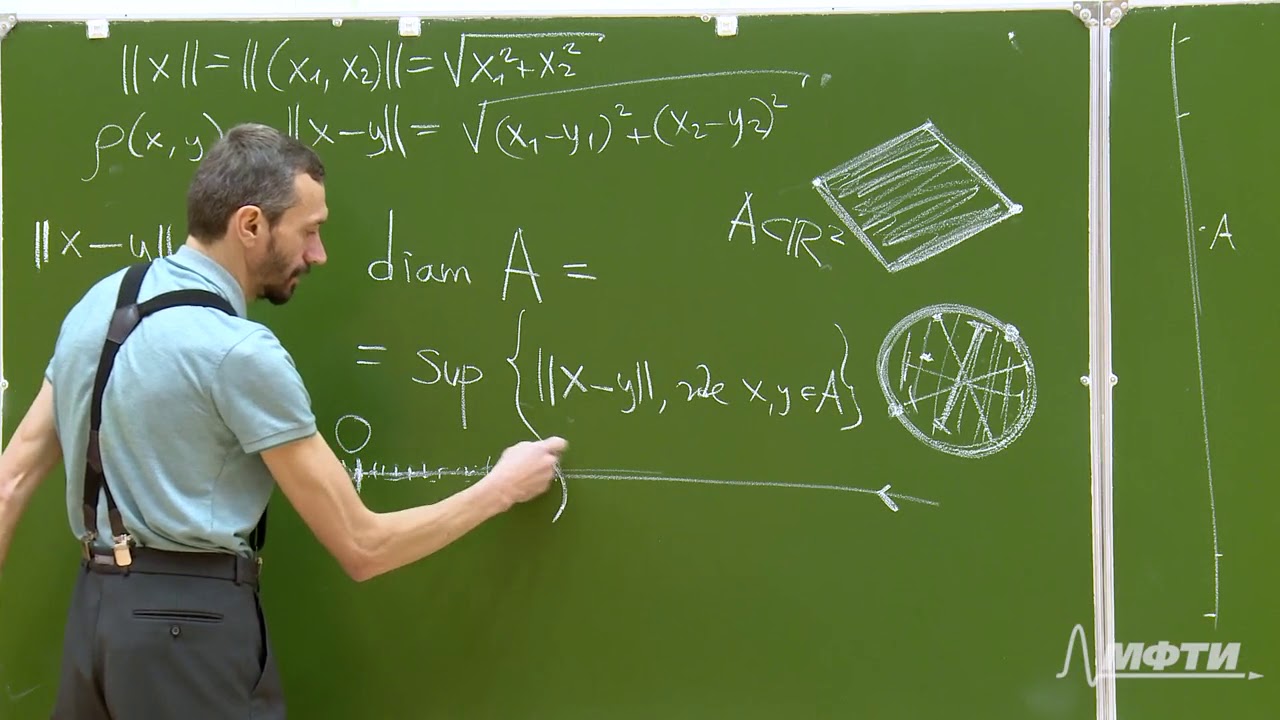 ||x|| = ||(x₁, x₂)|| = √(x₁² + x₂²)
ρ(x, y) ||x − y|| = √((x₁ − y₁)² + (x₂ − y₂)²)
||x − y||
diam A =
= sup { ||x − y||, где x, y ∈ A }
0
A ⊂ ℝ²
A
МФТИ